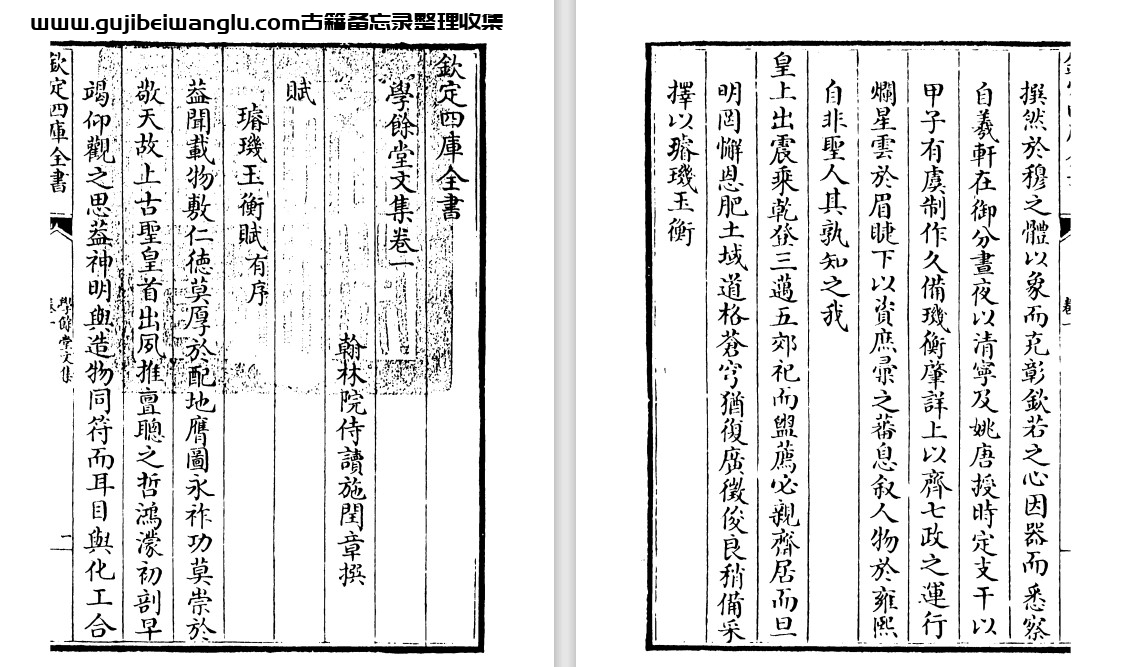 www.gujibeiwanglu.com古籍备忘录整理收集
欽定四庫全書
學餘堂文集卷一
翰林院侍讀施閏章撰
賦
璿璣玉衡賦有序
葢聞載物敷仁德莫厚於配地膺圖永祚功莫崇於
敬天故上古聖皇首出夙推亶聰之哲鴻濛初剖早
竭仰觀之思葢神明與造物同符而耳目與化工合
欽定四庫全書
學餘堂文集
撰然於穆之體以象而克彰欽若之心因器而悉察
自羲軒在御分晝夜以清寧及姚唐授時定支干以
甲子有虞制作久備璣衡肇詳上以齊七政之運行
爛星雲於眉睫下以資庶彚之蕃息叙人物於雍熙
自非聖人其孰知之我
皇上出震乘乾登三邁五郊祀而盥薦必親齊居而旦
明罔懈恩肥土域道格蒼穹猶復廣徵俊良稍備采
擇以璿璣玉衡